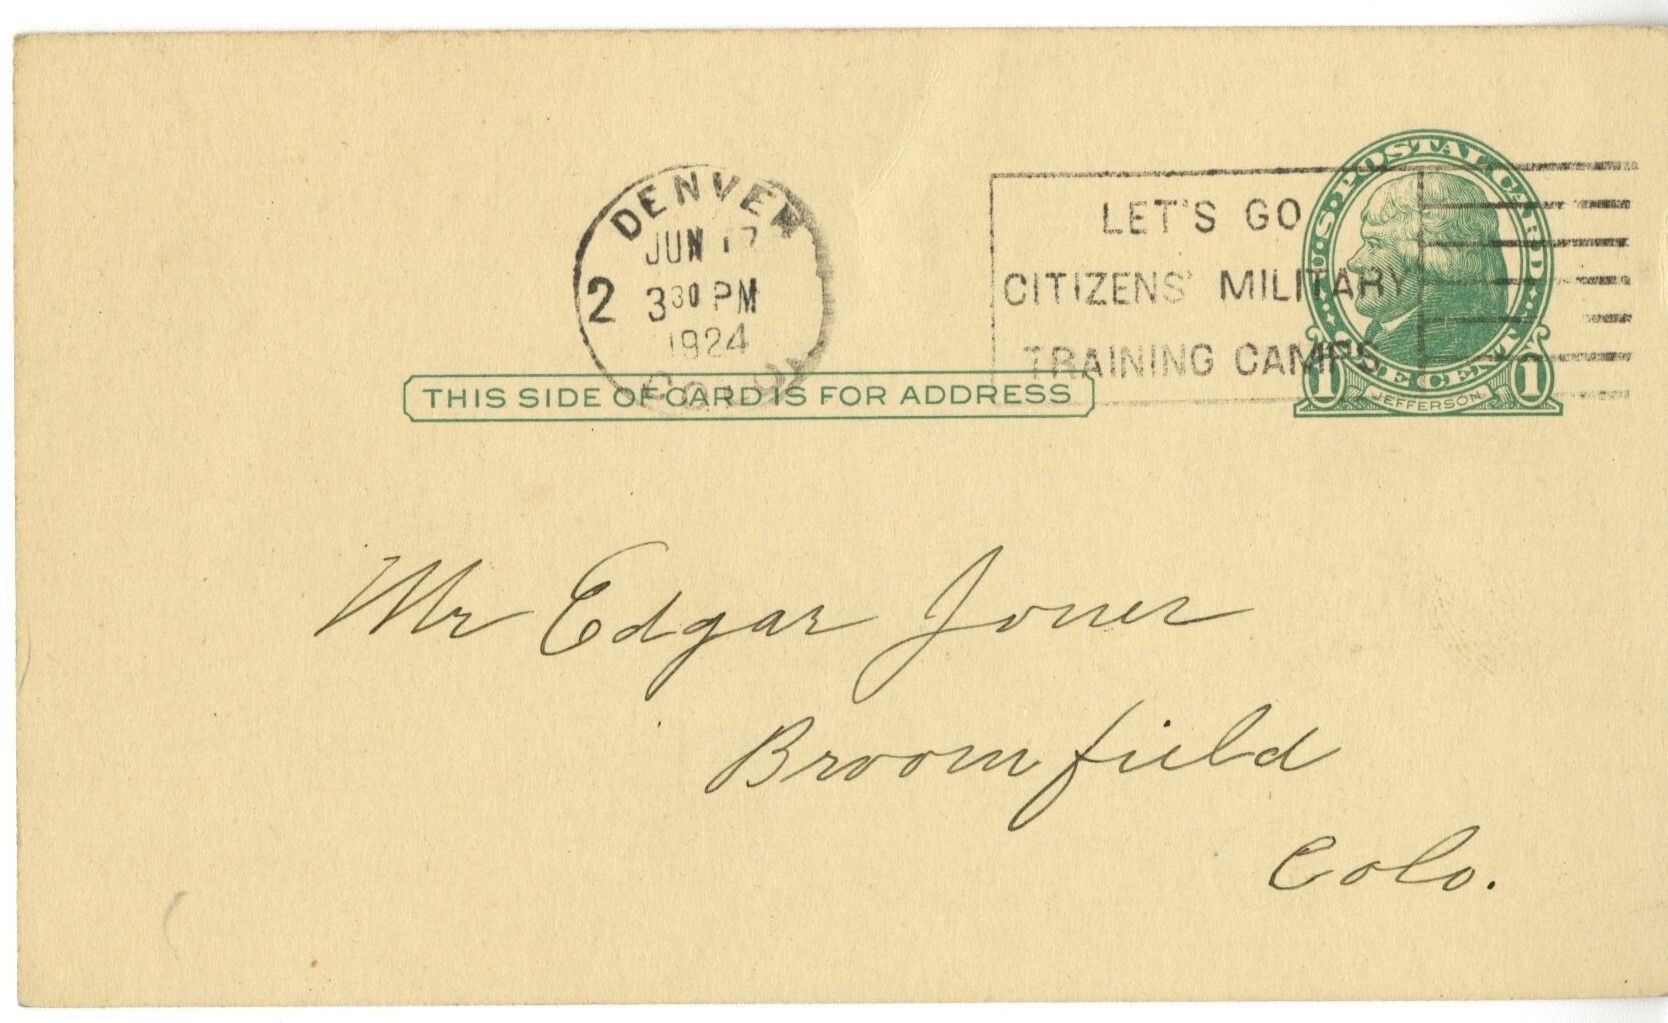 DENVER
JUN 17
2 3 30 PM
1924
COLO.
LET'S GO
CITIZENS' MILITARY
TRAINING CAMPS
U.S. POSTAL CARD
ONE CENT
1 JEFFERSON. 1
THIS SIDE OF CARD IS FOR ADDRESS
Mr Edgar Jones
Broomfield
Colo.